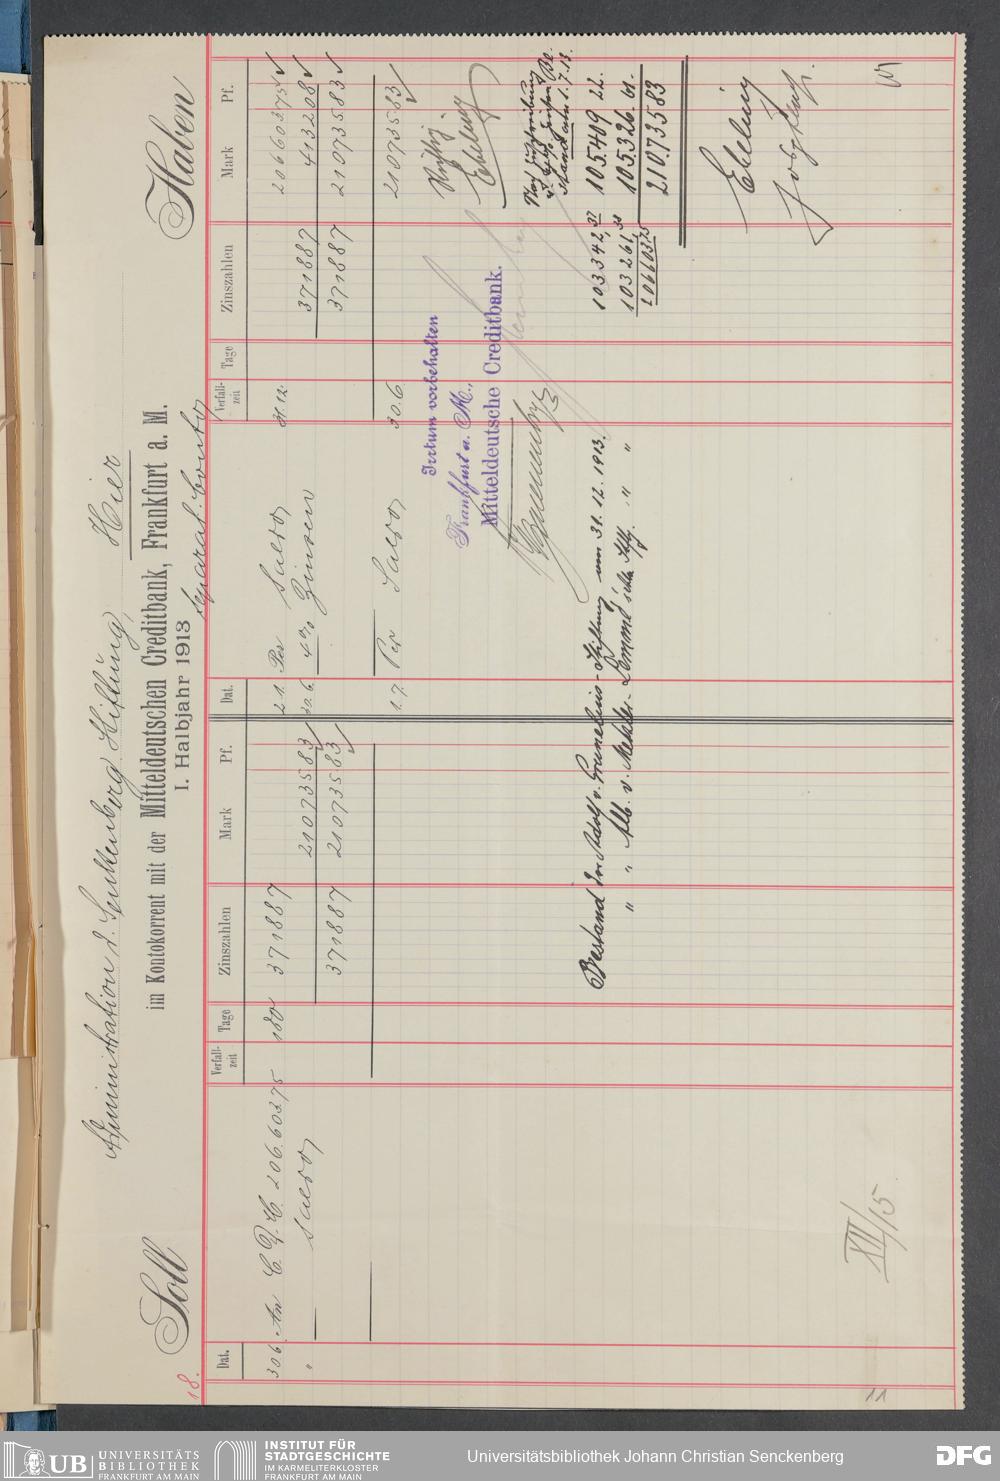 Administration d. Senckenberg. Stiftung, Hier
Soll
im Kontokorrent mit der Mitteldeutschen Creditbank, Frankfurt a. M.
Haben
I. Halbjahr 1913
Separat-Conto
18.
Dat.
Verfall-
zeit
Tage
Zinszahlen
Mark
Pf.
Dat.
Verfall-
zeit
Tage
Zinszahlen
Mark
Pf.
30.6. An C. 206.603.75 180 371887
" Saldo 210735 83
371887 210735 83
2.1. Per Saldo 31.12. 206603 75
30.6. 4% Zinsen 371887 4132 08
371887 210735 83
1.7. Per Saldo 30.6. 210735 83
Richtig.
Ebeling
Irrtum vorbehalten
Frankfurt a. M.,
Mitteldeutsche Creditbank.
Nach Zuschreibung
v. Zinsen
Stand aln 1.7.13.
Bestand der Adolf v. Gruneliusˢ-Stiftung am 31.12.1913. 103342,37 105409 22.
" " Alb. v. Metzler- " " 103261,38 105.326.61.
206603 75 210735 83
Ebeling
XII/15
11
UB UNIVERSITÄTS
BIBLIOTHEK
FRANKFURT AM MAIN
INSTITUT FÜR
STADTGESCHICHTE
IM KARMELITERKLOSTER
FRANKFURT AM MAIN
Universitätsbibliothek Johann Christian Senckenberg
DFG